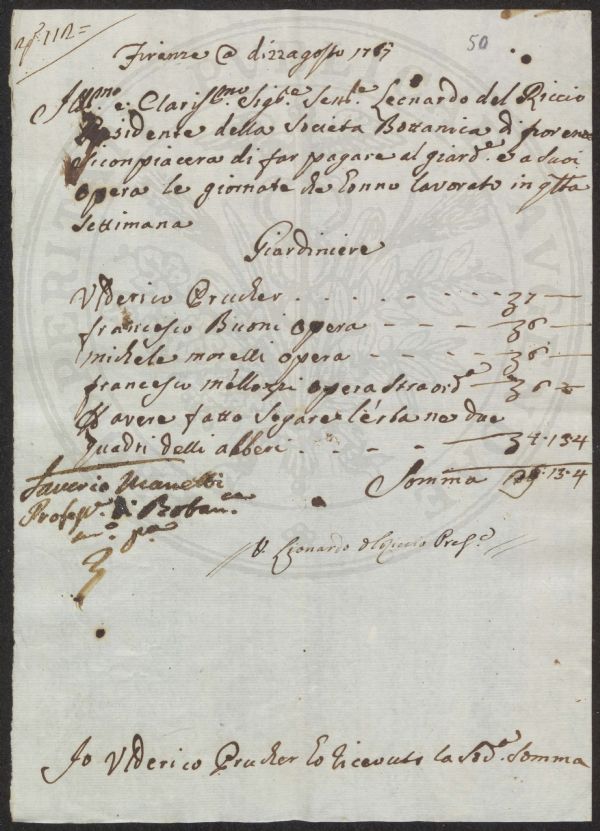 N.º 112=
50
Firenze @ di 22 agosto 1767
Ill.mo e Claris.mo Sig.re Sen.re Leonardo del Riccio
Presidente della Società Bottanica di fioren
Si conpiacera di far pagare al giard.e e a Suoi
opera le giornate che ónno lavorato in q.tta
Settimana
Giardiniere
Vlderico Prucher . . . . . . - - - 37 —
francesco Buoni opera - - - - 36 —
michele morelli opera - - - - 36 —
francesco mellozzi opera Straord.e - 36 —
D'avere fatto Segare l'erba ne due
quadri delli alberi . . . - - 34.13.4
Somma 29.13.4
Saverio Manetti
Profes.re di Botan.ca
m.o p.a
V. Leonardo del Riccio Pres.e
Io Vlderico Prucher ho ricevuto la Sod.a Somma